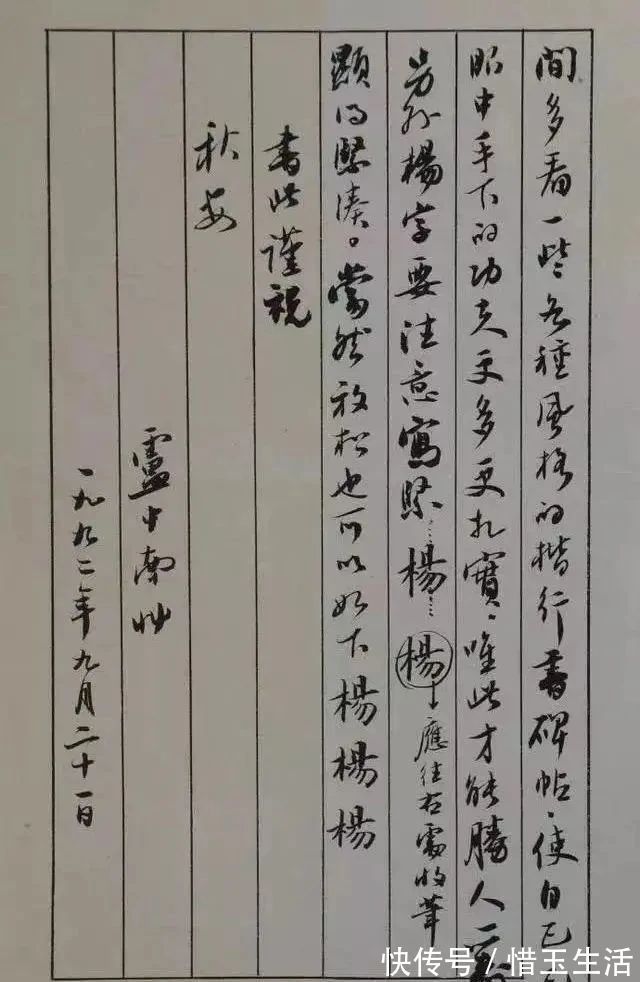 間多看一些各種風格的楷行書碑帖、使自己
眼中手下的功夫更多更扎實、唯此才能勝人一籌
另外楊字要注意寫緊……楊……楊 應往右處收筆
顯得緊湊。當然放松也可以如下楊楊楊
書此謹祝
秋安
盧中南抄
一九九二年九月二十一日
快传号/惜玉生活